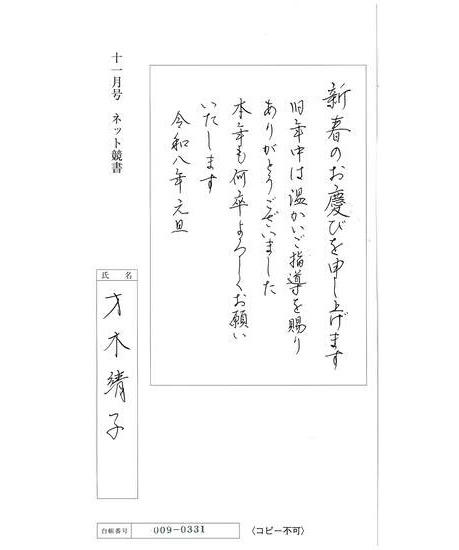 新春のお慶びを申し上げます
旧年中は温かいご指導を賜り
ありがとうございました
本年も何卒よろしくお願い
いたします
令和八年元旦
十一月号 ネット競書
氏名
才木靖子
台帳番号 009-0331
〈コピー不可〉